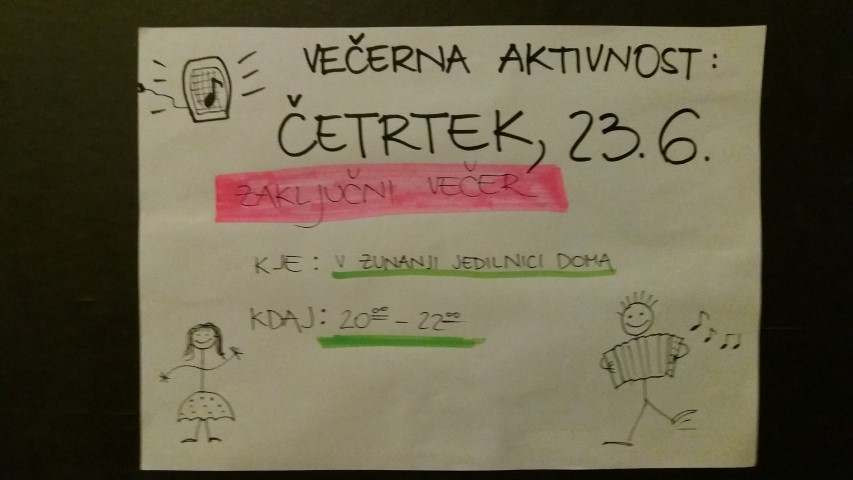 VEČERNA AKTIVNOST:
ČETRTEK, 23.6.
ZAKLJUČNI VEČER
KJE: V ZUNANJI JEDILNICI DOMA
KDAJ: 20⁰⁰ - 22⁰⁰